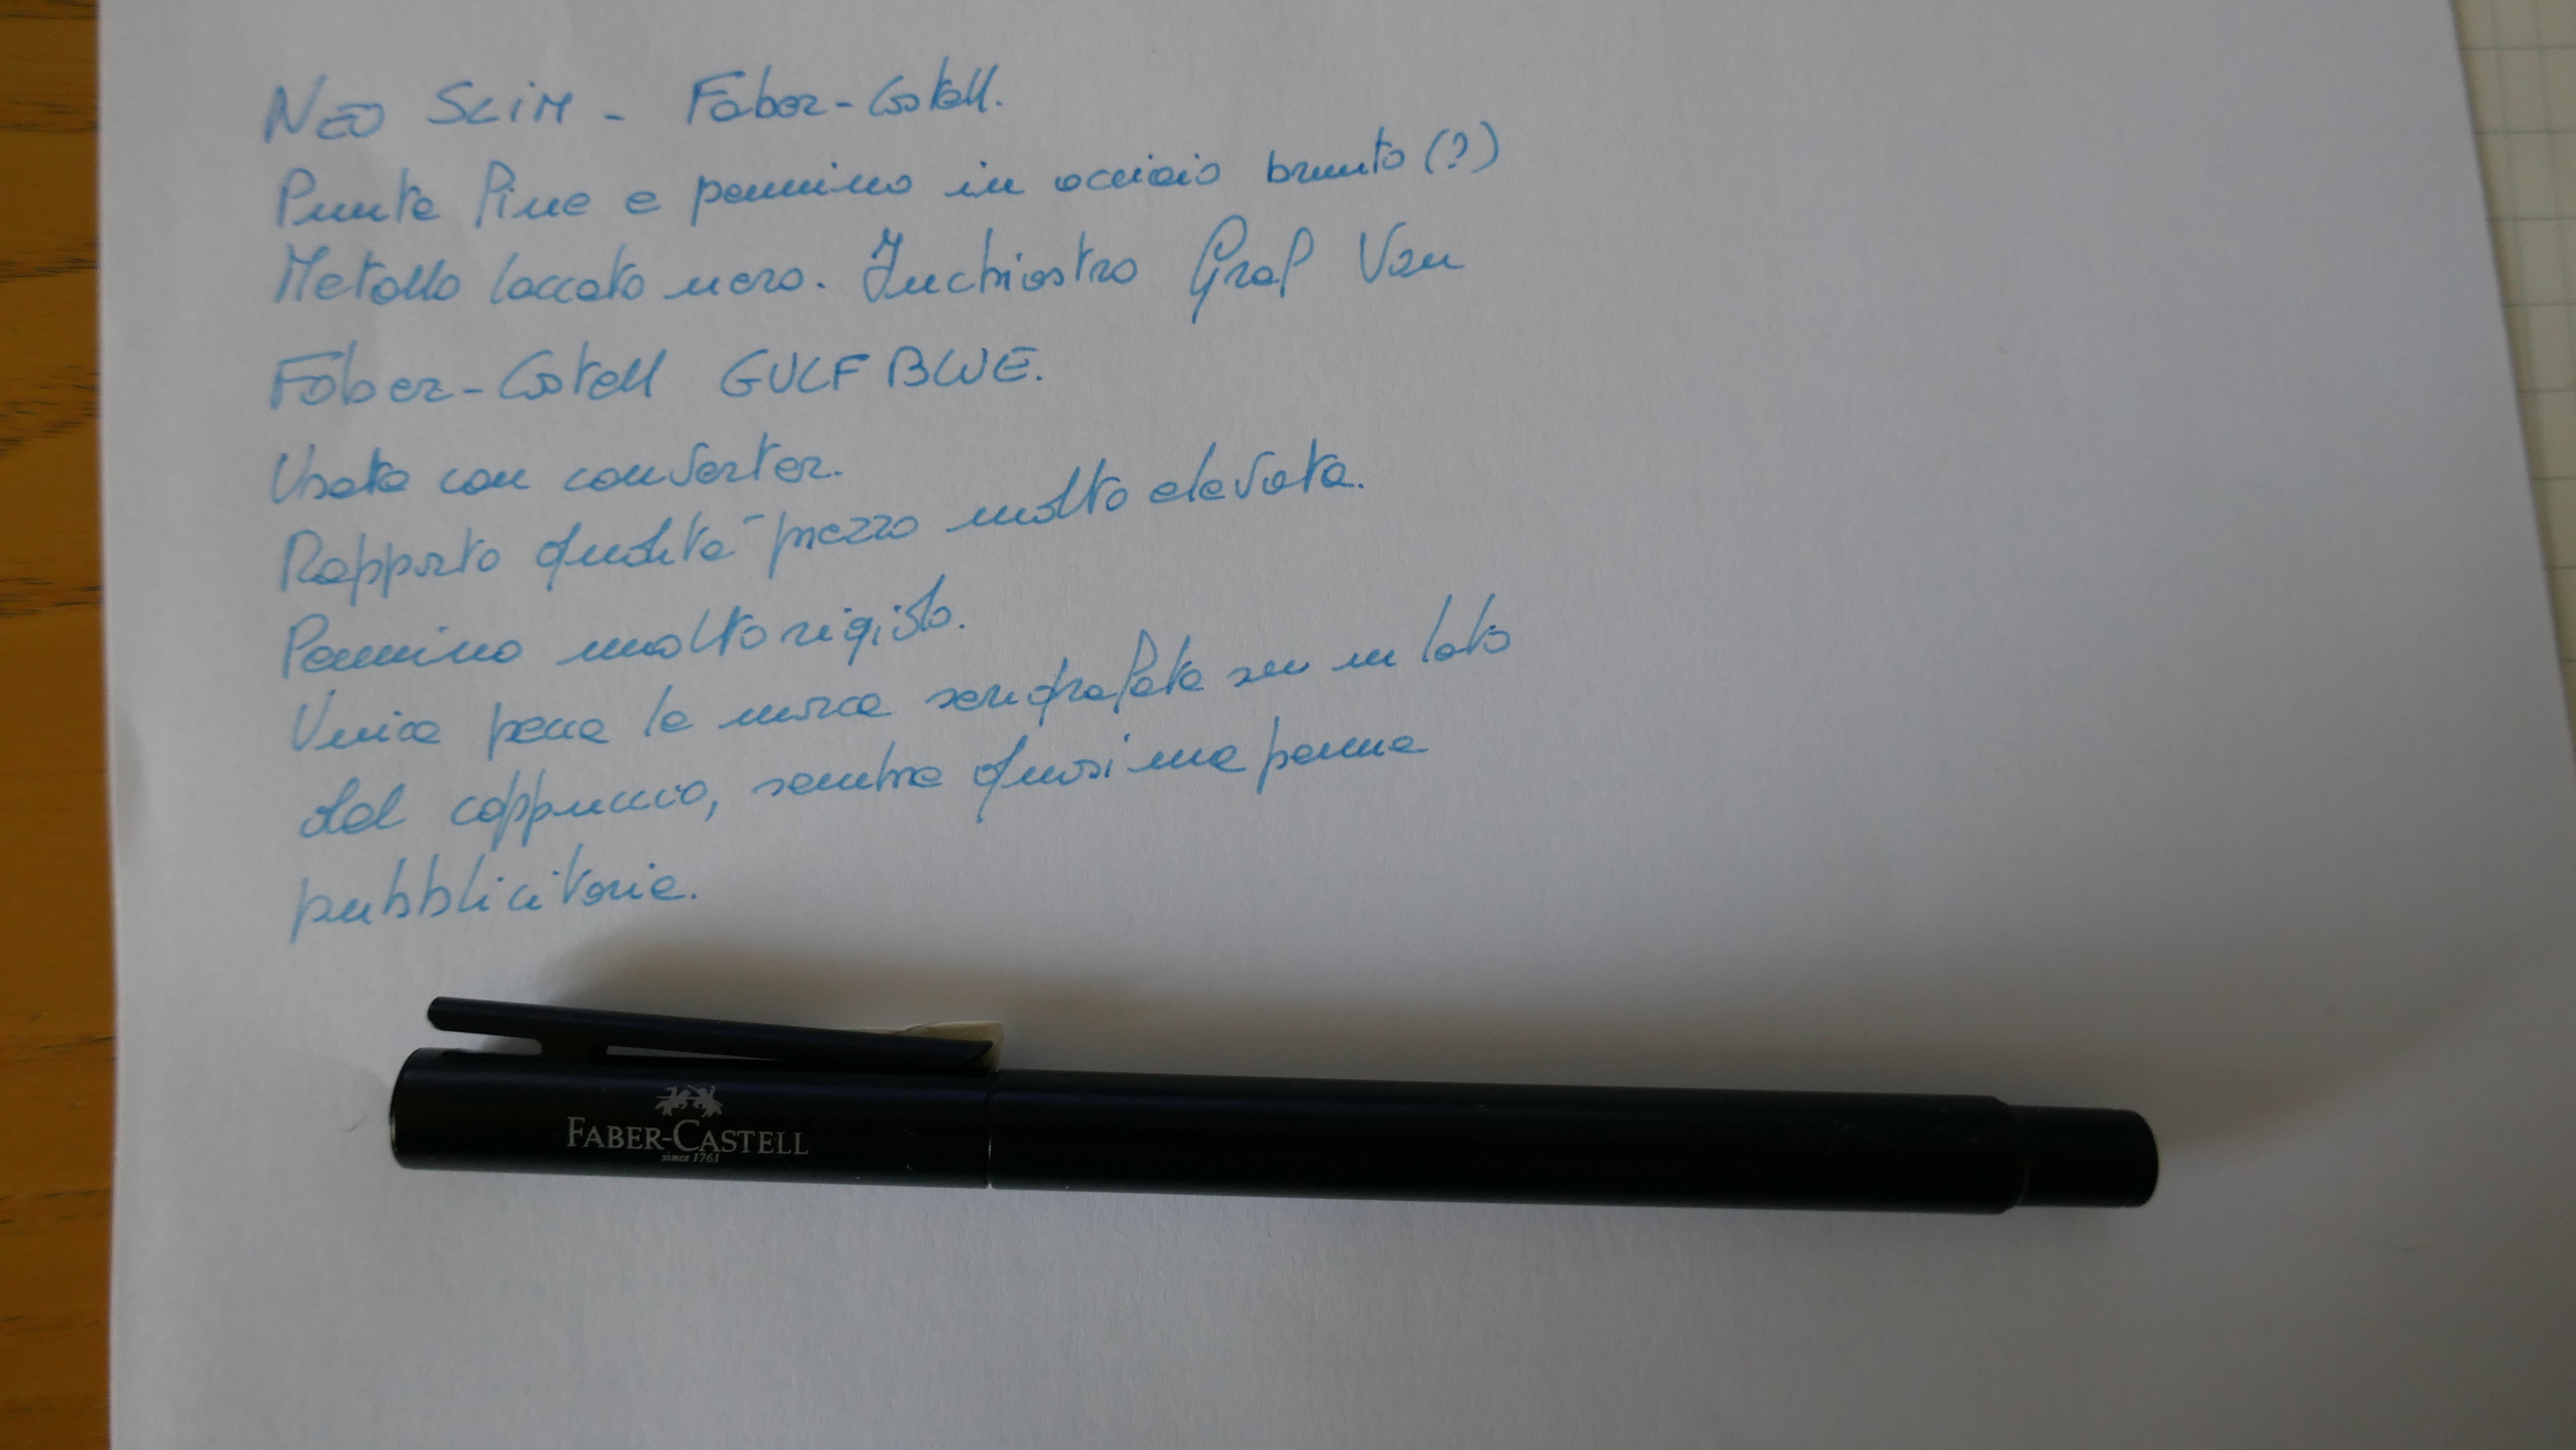 NEO SLIM - Faber-Castell.
Punta fine e pennino in acciaio brunito (?)
Metallo laccato nero. Inchiostro Graf Von
Faber-Castell GULF BLUE.
Usata con converter.
Rapporto qualità-prezzo molto elevata.
Pennino molto rigido.
Unica pecca la marca serigrafata su un lato
del cappuccio, sembra quasi una penna
pubblicitaria.
FABER-CASTELL
since 1761